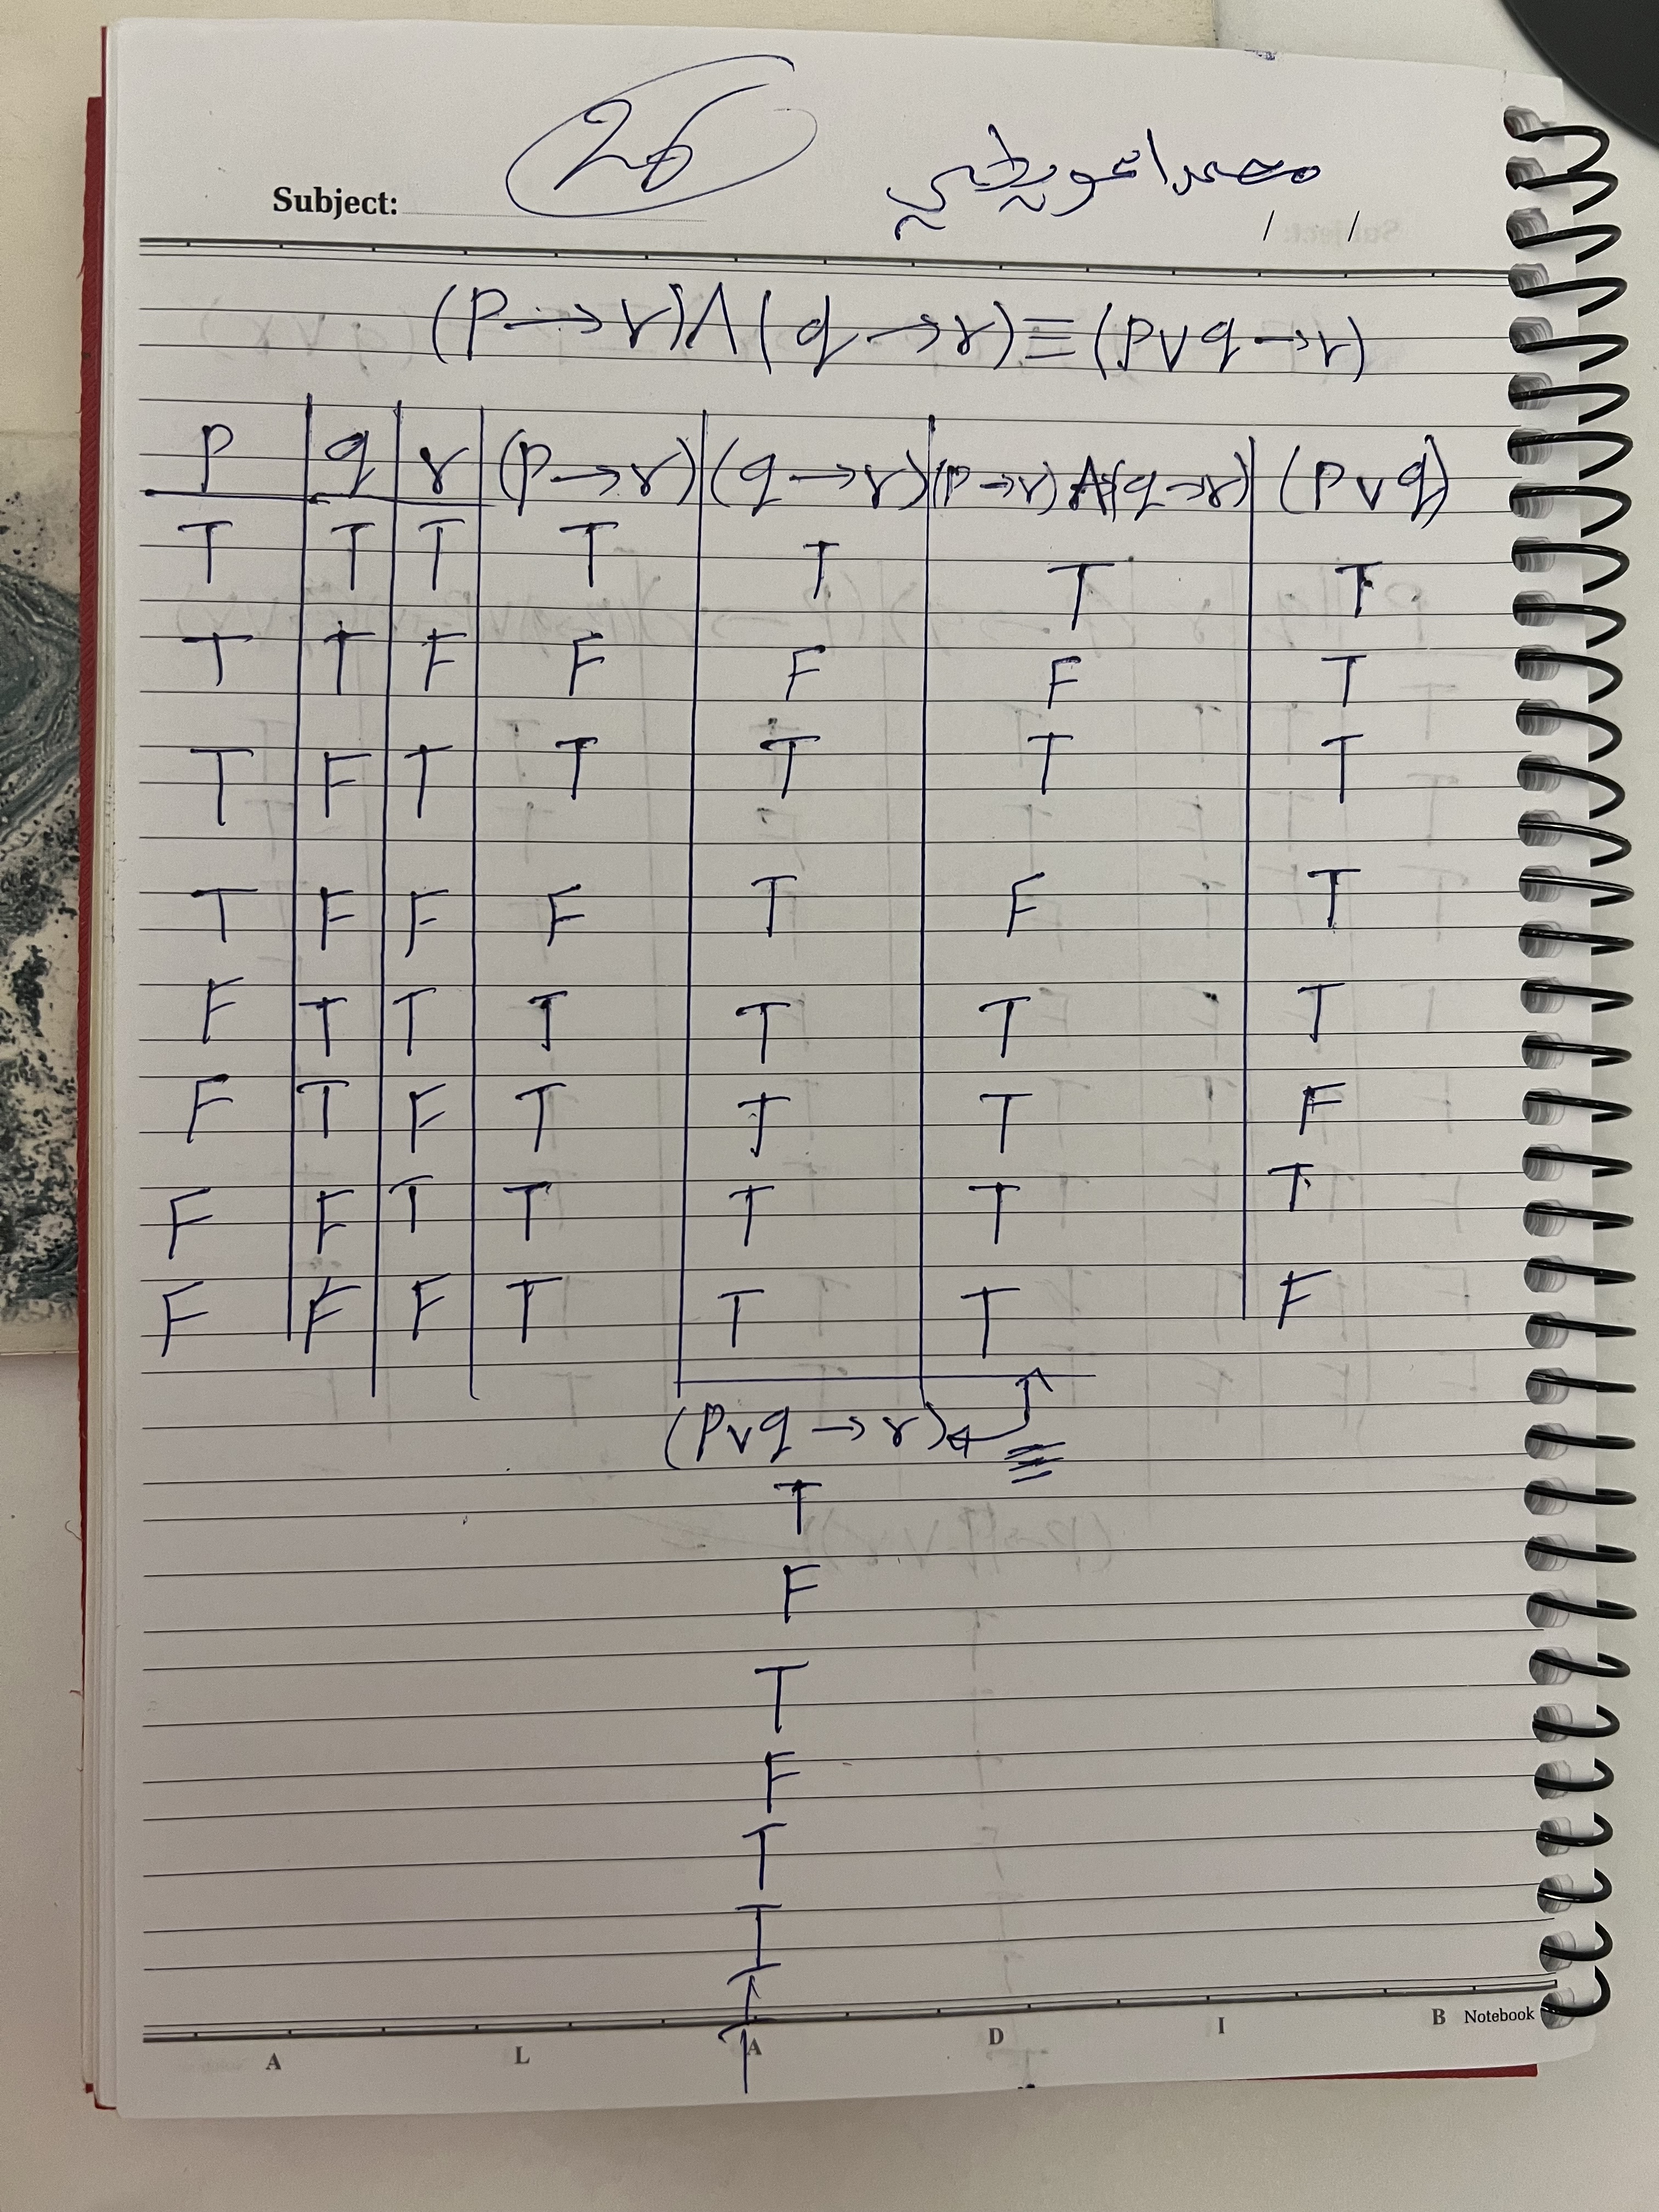 26 محمد العويطي
Subject: / /
(P → r) ∧ (q → r) ≡ (p ∨ q → r)
P q r (p → r) (q → r) (p → r) ∧ (q → r) (p ∨ q)
T T T T T T T
T T F F F F T
T F T T T T T
T F F F T F T
F T T T T T T
F T F T T T F
F F T T T T T
F F F T T T F
(p ∨ q → r) ≡
T
F
T
F
T
T
T
T
A L A D I B Notebook